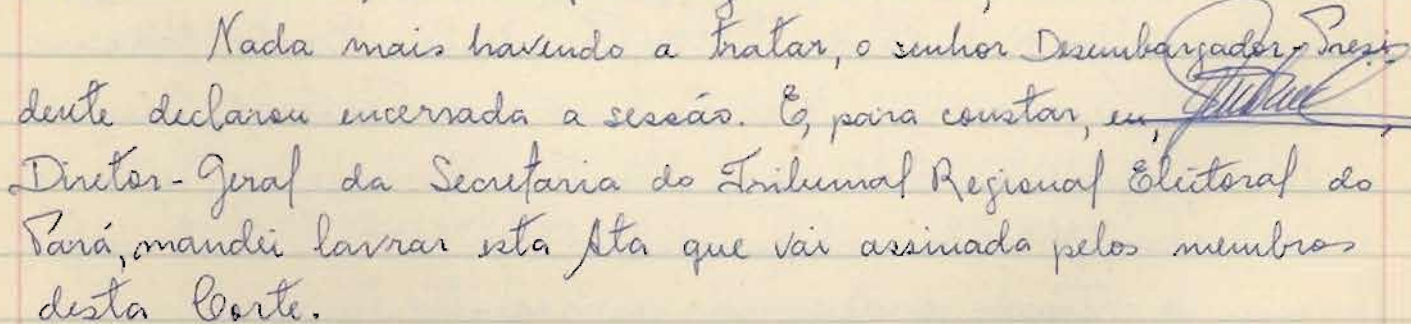 Nada mais havendo a tratar, o senhor Desembargador-Presi
dente declarou encerrada a sessão. E, para constar, eu,
Diretor-Geral da Secretaria do Tribunal Regional Eleitoral do
Pará, mandei lavrar esta Ata que vai assinada pelos membros
desta Corte.